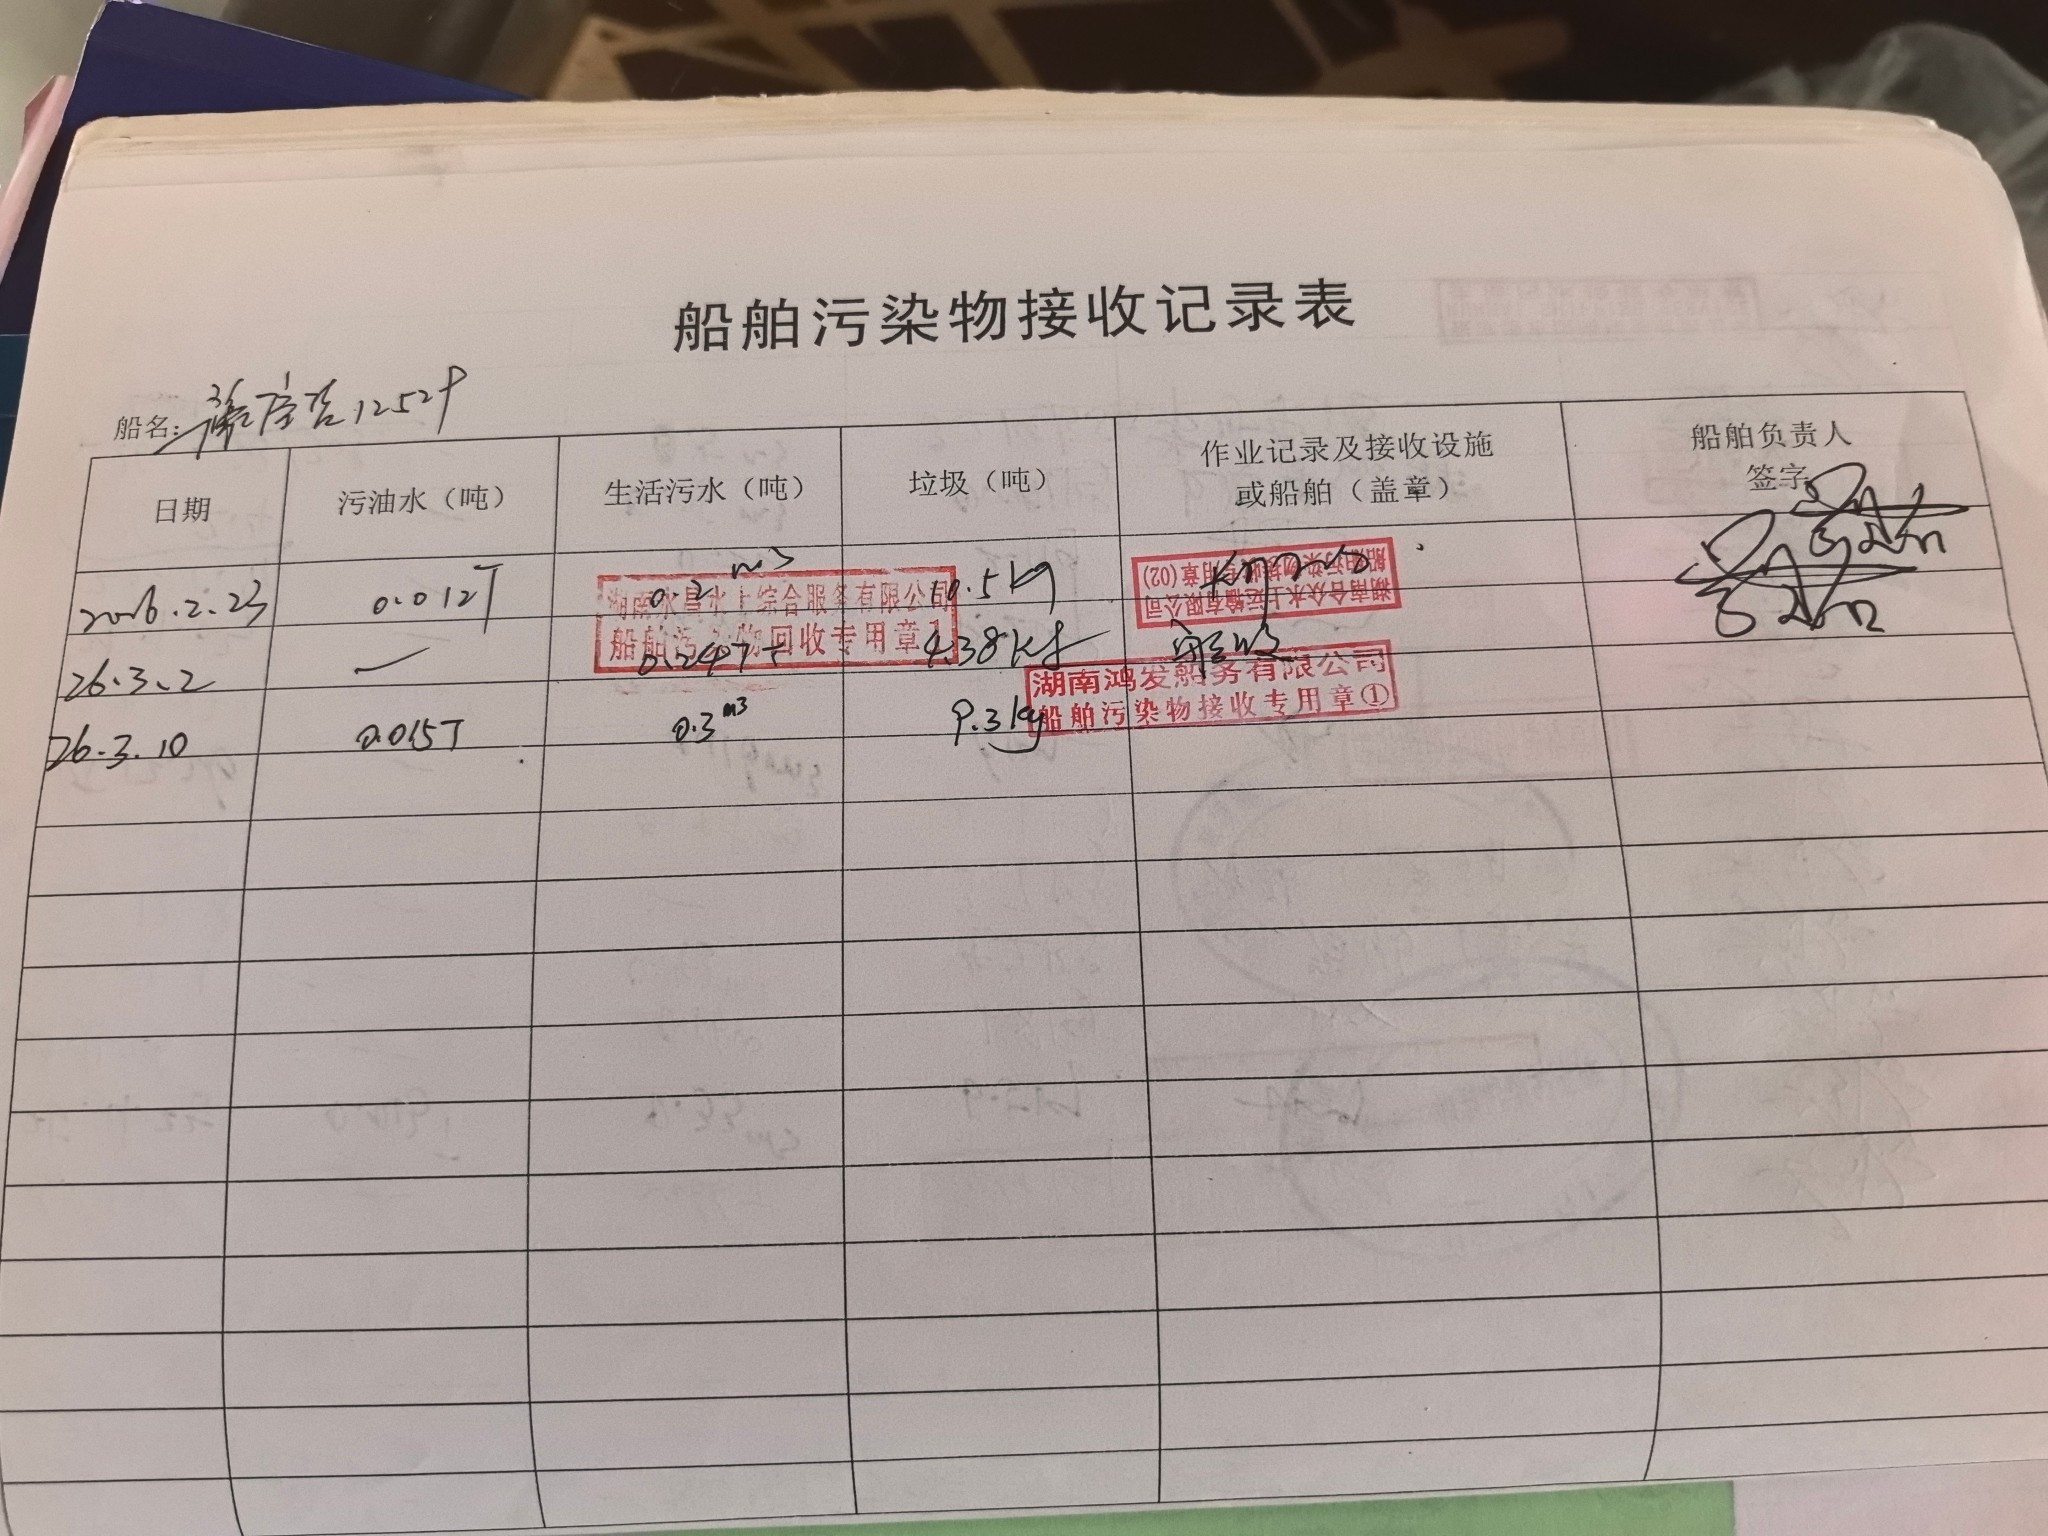 船舶污染物接收记录表
船名：
日期 污油水（吨） 生活污水（吨） 垃圾（吨） 作业记录及接收设施或船舶（盖章） 船舶负责人签字
2026.2.23 0.012T 0.2 m3 10.5kg
湖南永昌水上综合服务有限公司
船舶污 物回收专用章1
湖南合众水上运输有限公司
船舶污染物接收专用章(02)
26.3.2 — 0.247T 4.38Kg
湖南鸿发船务有限公司
船舶污染物接收专用章①
26.3.10 0.015T 0.3 m3 9.3kg